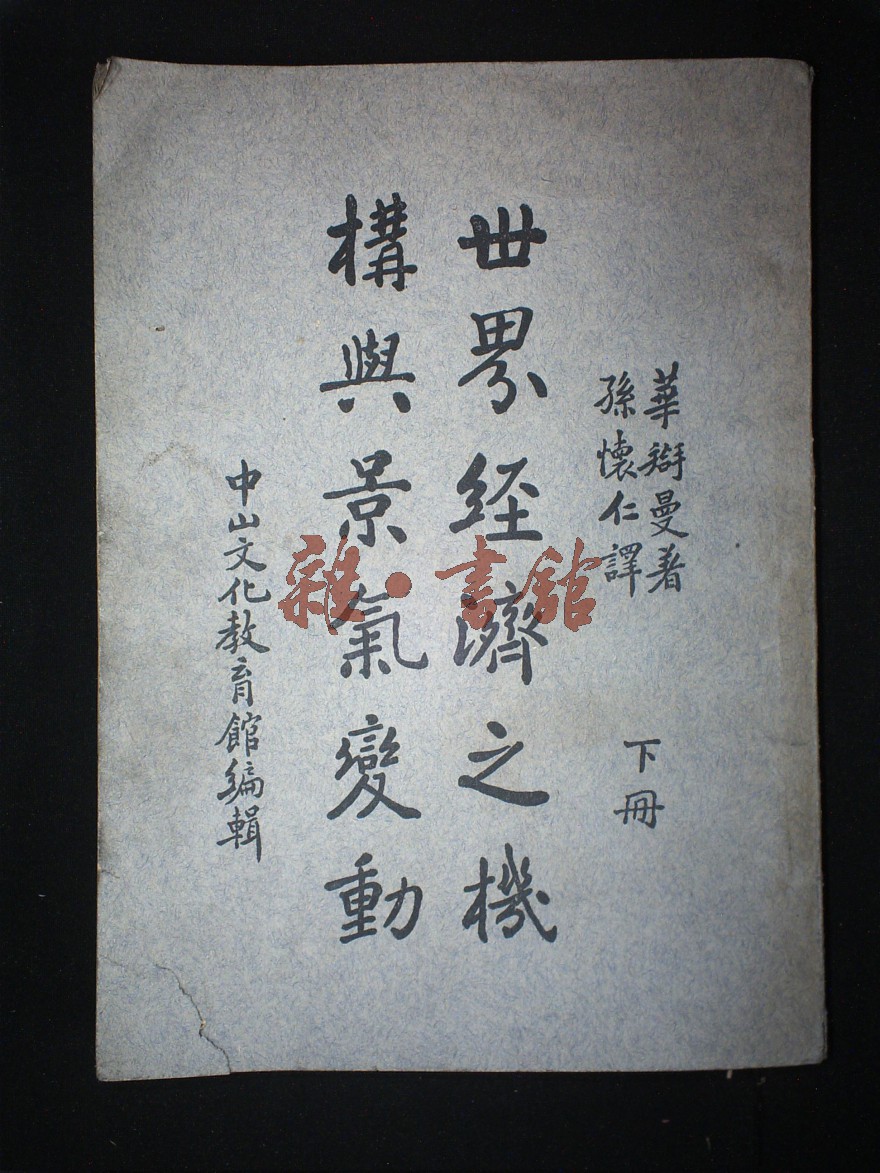 華曼著
孫懷仁譯
下冊
世界經濟之機
構與景氣變動
中山文化教育館編輯
雜·書館